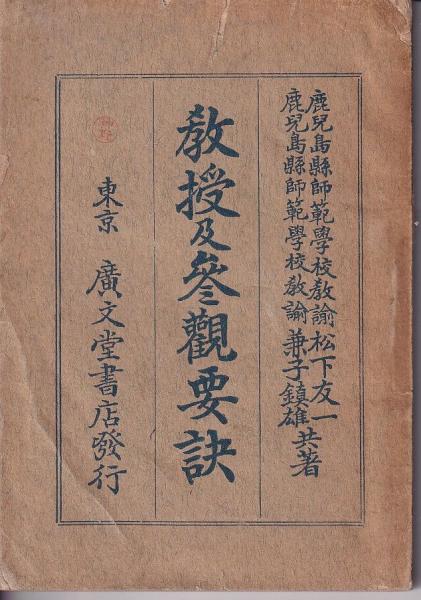 鹿兒島縣師範學校教諭 松下友一
鹿兒島縣師範學校教諭 兼子鎮雄
共著
教授及參觀要訣
東京 廣文堂書店發行